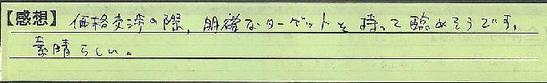 【感想】価格交渉の際、明確なターゲットを持って臨めそうです。
素晴らしい。